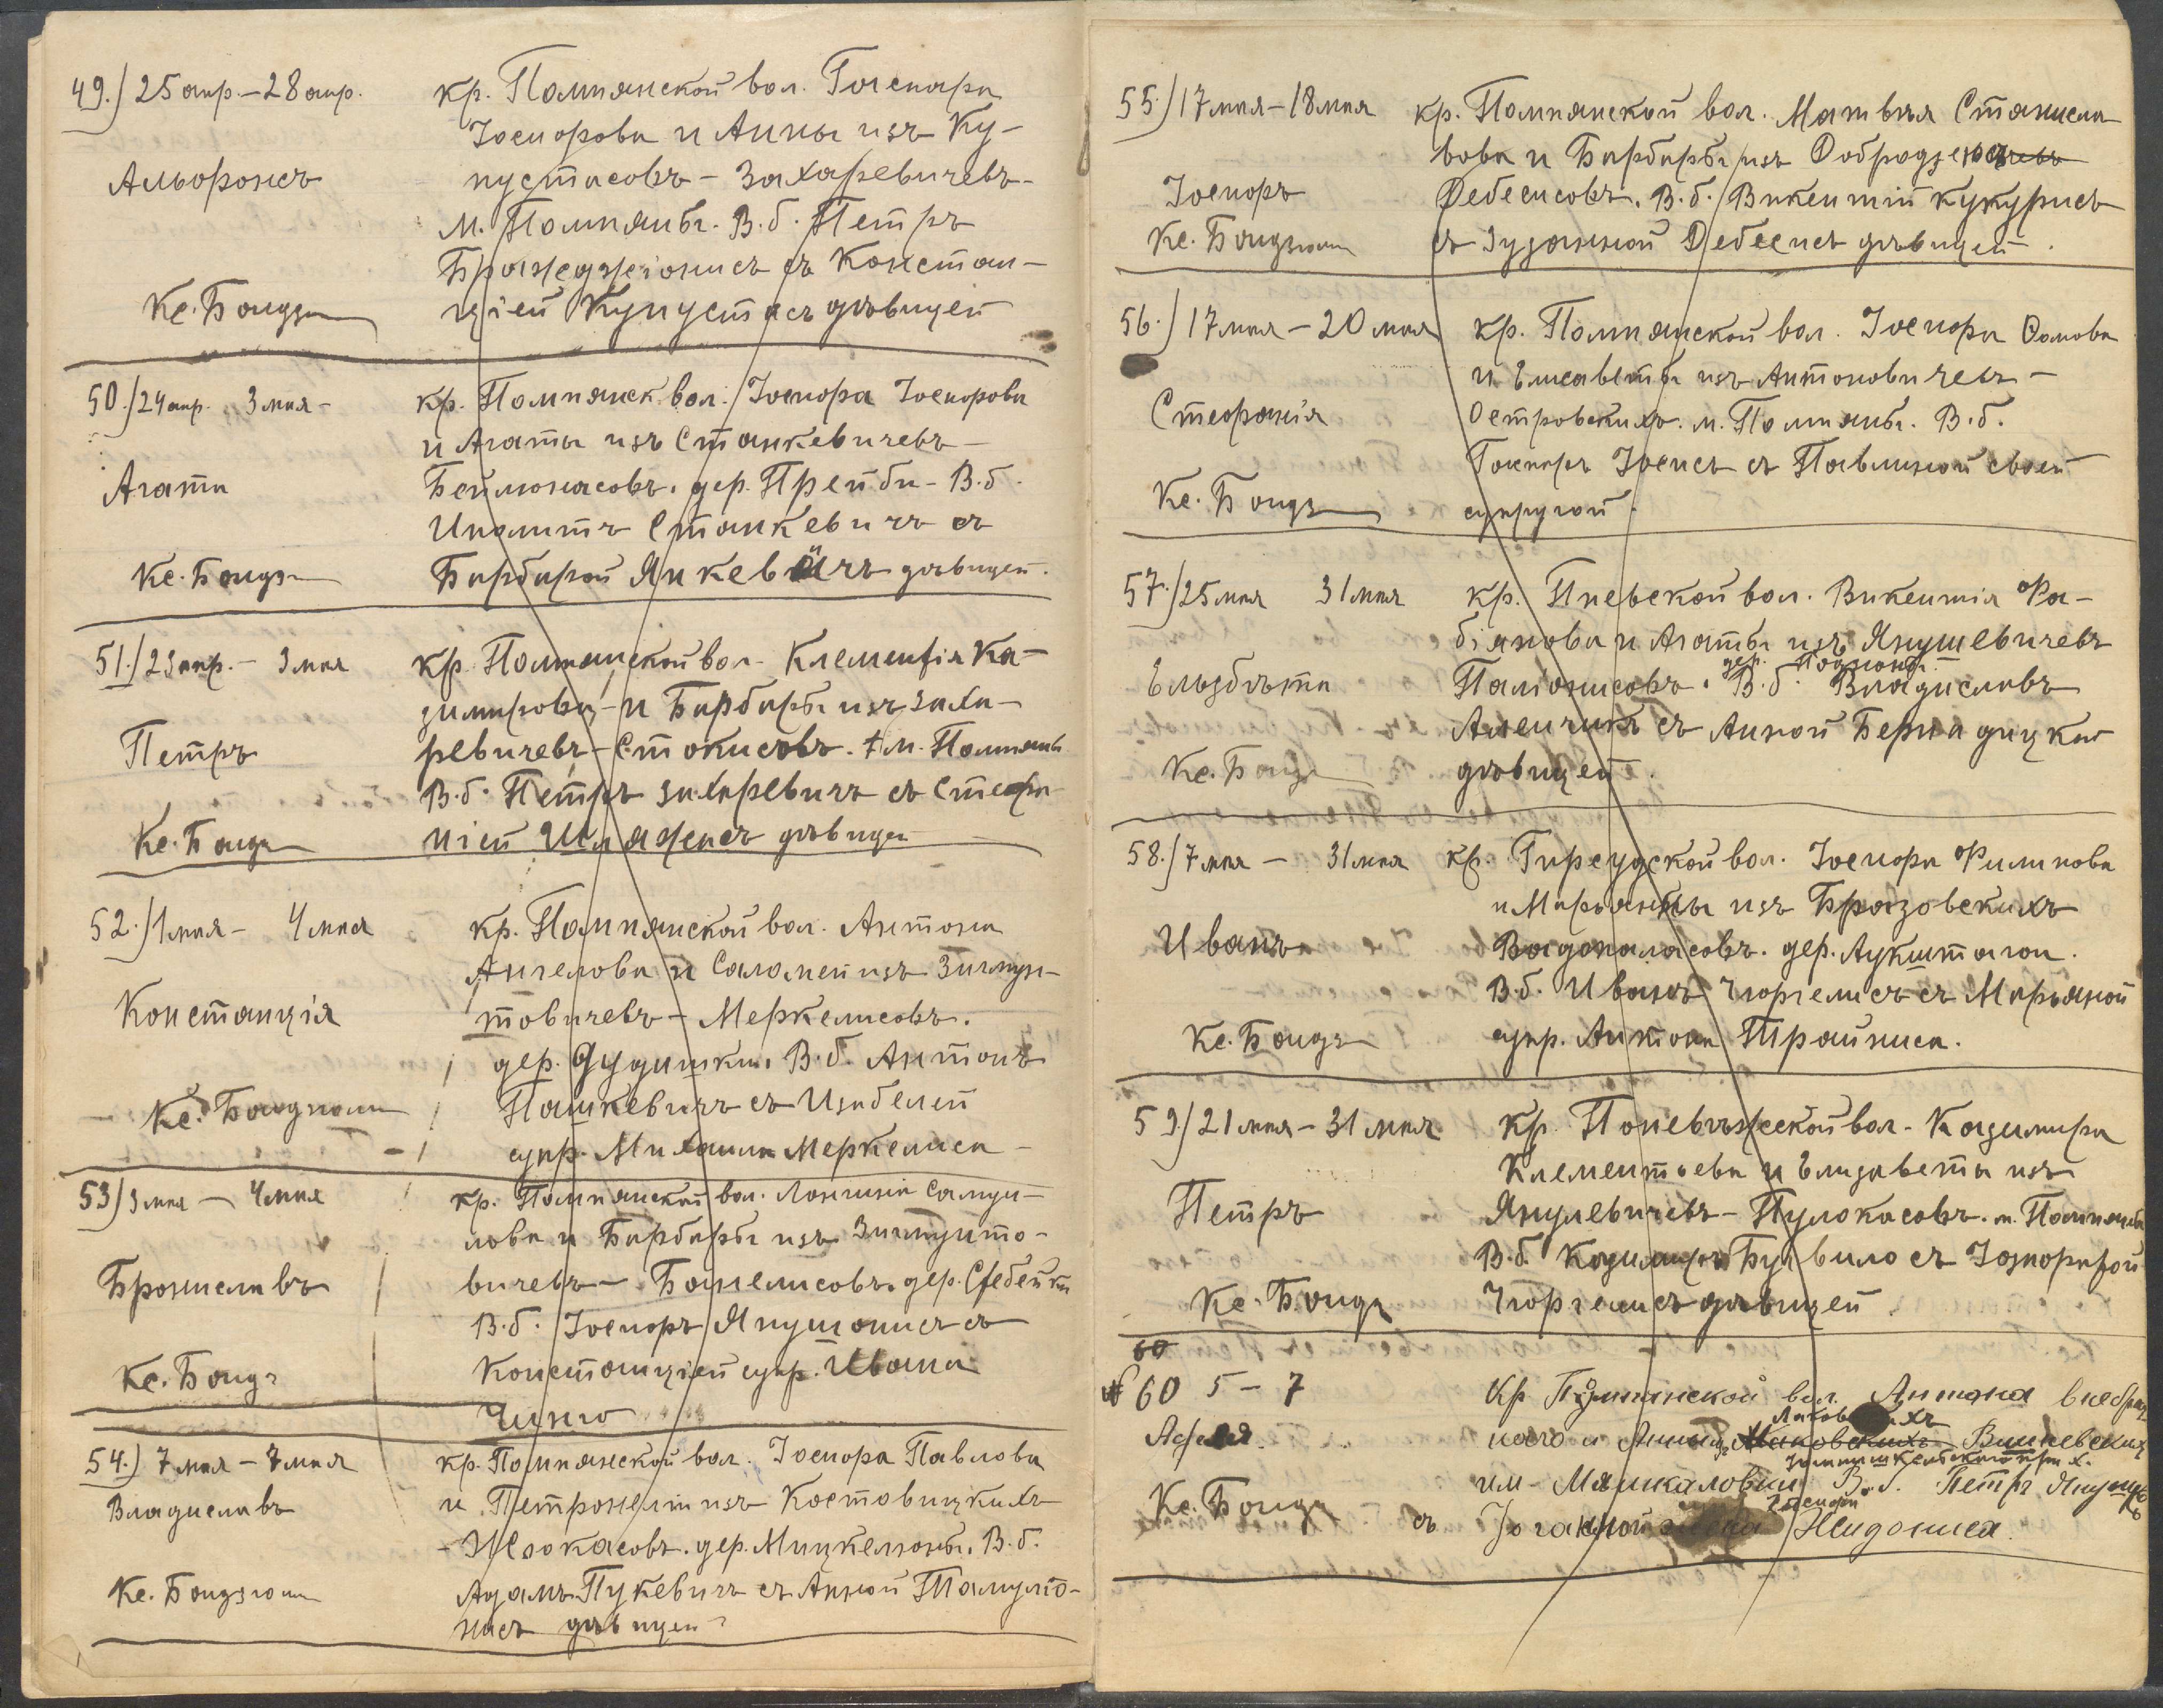 49.) 25 апр. – 28 апр.
Альфонсъ
Кс. Бондз
кр. Помпянской вол. Гаспара
Іосифова и Анны изъ Ку-
пустасовъ – Захаревичевъ –
м. Помпяны. В.б. Петръ
Бражеджіонисъ съ Констан-
ціей Купустасъ дѣвицей
50.) 24 апр. 3 мая –
Агата
Кс. Бондз
кр. Помпянск. вол. Іосифа Іосифова
и Агаты изъ Станкевичевъ –
Беймонасовъ. дер. Прейби – В.б.
Иполитъ Станкевичъ съ
Барбарой Янкевичъ дѣвицей.
51.) 23 апр. – 3 мая
Петръ
Кс. Бондз
кр. Помпянской вол. Клементія Ка-
зимирова – и Барбары изъ Заха-
ревичевъ – Стокисовъ. м. Помпяны
В.б. Петръ Захаревичъ съ Стефа-
ніей Шляжасъ дѣвицей
52.) 1 мая – 4 мая
Констанція
Кс. Бондзюли
кр. Помпянской вол. Антона
Ангелова и Саломеи изъ Зигмун-
товичевъ – Меркелисовъ.
дер. Дудишки. В.б. Антонъ
Пашкевичъ съ Изабелей
супр. Михаила Меркелиса –
53) 3 мая – 4 мая
Брониславъ
Кс. Бондз
кр. Помпянской вол. Лонгина Самуи-
лова и Барбары изъ Зигмунто-
вичевъ – Бонелисовъ. дер. Сребейки
В.б. Іосифъ Янушонисъ съ
Констанціей супр. Ивана
Чинго
54.) 7 мая – 7 мая
Владиславъ
Кс. Бондзюли
кр. Помпянской вол. Іосифа Павлова
и Петронели изъ Костовицкихъ
– Жлокасовъ. дер. Мицкелюны. В.б.
Адамъ Пукевичъ съ Анной Тамулiо-
насъ дѣвицей
55.) 17 мая – 18 мая
Іосифъ
Кс. Бондзюли
кр. Помпянской вол. Матвѣя Станисла-
вова и Барбары изъ Добродзе
Дебесисовъ. В.б. Викентій Кукурисъ
съ Зузанной Дебесисъ дѣвицей.
56.) 17 мая – 20 мая
Стефанія
Кс. Бондз
кр. Помпянской вол. Іосифа Ѳомова
и Елисаветы изъ Антоновичевъ –
Островскихъ. м. Помпяны. В.б.
Гаспаръ Іосисъ съ Павлиной своей
супругой.
57.) 25 мая 31 мая
Ельзбѣта
Кс. Бондз
кр. Пневской вол. Викентія Фа-
біянова и Агаты изъ Янушевичевъ
Паліонисовъ. В.б. Владиславъ
Алейчикъ съ Анной Бернадицкой
дѣвицей.
58.) 7 мая – 31 мая
Иванъ
Кс. Бондз
кр. Гирсудской вол. Іосифа Филипова
и Марьянны изъ Бразовскихъ
Вадопаласовъ. дер. Аукштагол.
В.б. Иванъ Чюргелисъ съ Марьяной
супр. Антона Трайниса.
59.) 21 мая – 31 мая
Петръ
Кс. Бондз
кр. Поневѣжской вол. Казимира
Клементьева и Елизаветы изъ
Янулевичевъ – Пулокасовъ. м. Помпяны
В.б. Казимиръ Бувило съ Іозефатой
Чюргелисъ дѣвицей.
60
60 5 – 7
Кс. Бондз
Кр Помпянской вол. Антона внебрач
наго и Анны Вишневских
им – Машкаловщи В.б. Петръ Януш
съ Іоганной Жидониса.